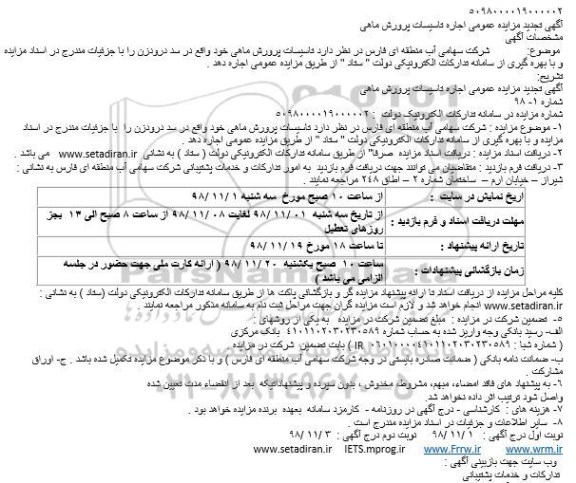 ۵۰۹۸۰۰۰۰۱۹۰۰۰۰۰۲
آگهی تجدید مزایده عمومی اجاره تاسیسات پرورش ماهی
مشخصات آگهی
موضوع: شرکت سهامی آب منطقه ای فارس در نظر دارد تاسیسات پرورش ماهی خود واقع در سد درودزن را با جزئیات مندرج در اسناد مزایده
و با بهره گیری از سامانه تدارکات الکترونیکی دولت " ستاد " از طریق مزایده عمومی اجاره دهد .
تشریح:
آگهی تجدید مزایده عمومی اجاره تاسیسات پرورش ماهی
شماره ۱- ۹۸
شماره مزایده در سامانه تدارکات الکترونیک دولت : ۵۰۹۸۰۰۰۰۱۹۰۰۰۰۰۲
۱- موضوع مزایده : شرکت سهامی آب منطقه ای فارس در نظر دارد تاسیسات پرورش ماهی خود واقع در سد درودزن را با جزئیات مندرج در اسناد
مزایده و با بهره گیری از سامانه تدارکات الکترونیکی دولت " ستاد " از طریق مزایده عمومی اجاره دهد .
۲- دریافت اسناد مزایده : دریافت اسناد مزایده صرفا" از طریق سامانه تدارکات الکترونیکی دولت ( ستاد ) به نشانی www.setadiran.ir می باشد .
۳- دریافت فرم بازدید : متقاضیان می توانند جهت دریافت فرم بازدید به امور تدارکات و خدمات پشتیبانی شرکت سهامی آب منطقه ای فارس به نشانی :
شیراز – خیابان ارم – ساختمان شماره ۲ – اطاق ۲۴۸ مراجعه نمایند .
تاریخ نمایش در سایت : از ساعت ۱۰ صبح مورخ سه شنبه ۹۸/۱۱/۱
مهلت دریافت اسناد و فرم بازدید : از تاریخ سه شنبه ۹۸/۱۱/۰۱ لغایت ۹۸/۱۱/۰۸ از ساعت ۸ صبح الی ۱۳ بجز
روزهای تعطیل
تاریخ ارائه پیشنهاد : تا ساعت ۱۸ مورخ ۹۸/۱۱/۱۹
زمان بازگشائی پیشنهادات : ساعت ۱۰ صبح یکشنبه ۹۸/۱۱/۲۰ ( ارائه کارت ملی جهت حضور در جلسه
الزامی می باشد )
کلیه مراحل مزایده از دریافت اسناد تا ارائه پیشنهاد مزایده گر و بازگشائی پاکت ها از طریق سامانه تدارکات الکترونیکی دولت (ستاد ) به نشانی :
www.setadiran.ir انجام خواهد شد و لازم است مزایده گران جهت مراحل ثبت نام به سامانه مذکور مراجعه نمایند .
۵- تضمین شرکت در مزایده : مبلغ تضمین شرکت در مزایده به یکی از روشهای :
الف- رسید بانکی وجه واریز شده به حساب شماره ۴۱۰۱۱۰۲۰۳۰۲۳۰۵۸۹ بانک مرکزی
( شماره شبا : IR ۰۶۰۱۰۰۰۰۴۱۰۱۱۰۲۰۳۰۲۳۰۵۸۹ ) بابت تضمین شرکت در مزایده .
ب- ضمانت نامه بانکی ( ضمانت صادره بایستی در وجه شرکت سهامی آب منطقه ای فارس ) و با ذکر موضوع مزایده تکمیل شده باشد . ج- اوراق
مشارکت .
۶- به پیشنهاد های فاقد امضاء، مبهم، مشروط، مخدوش ، بدون سپرده و پیشنهاداتیکه بعد از انقضاء مدت تعیین شده
واصل شود ترتیب اثر داده نخواهد شد.
۷- هزینه های : کارشناسی - درج آگهی در روزنامه - کارمزد سامانه بعهده برنده مزایده خواهد بود .
۸- سایر اطلاعات و جزئیات در اسناد مزایده مندرج است .
نوبت اول درج آگهی : ۹۸/۱۱/۱ نوبت دوم درج آگهی : ۹۸/۱۱/۳
www.wrm.ir www.Frrw.ir IETS.mprog.ir www.setadiran.ir
وب سایت جهت بازبینی آگهی :
تدارکات و خدمات پشتیبانی